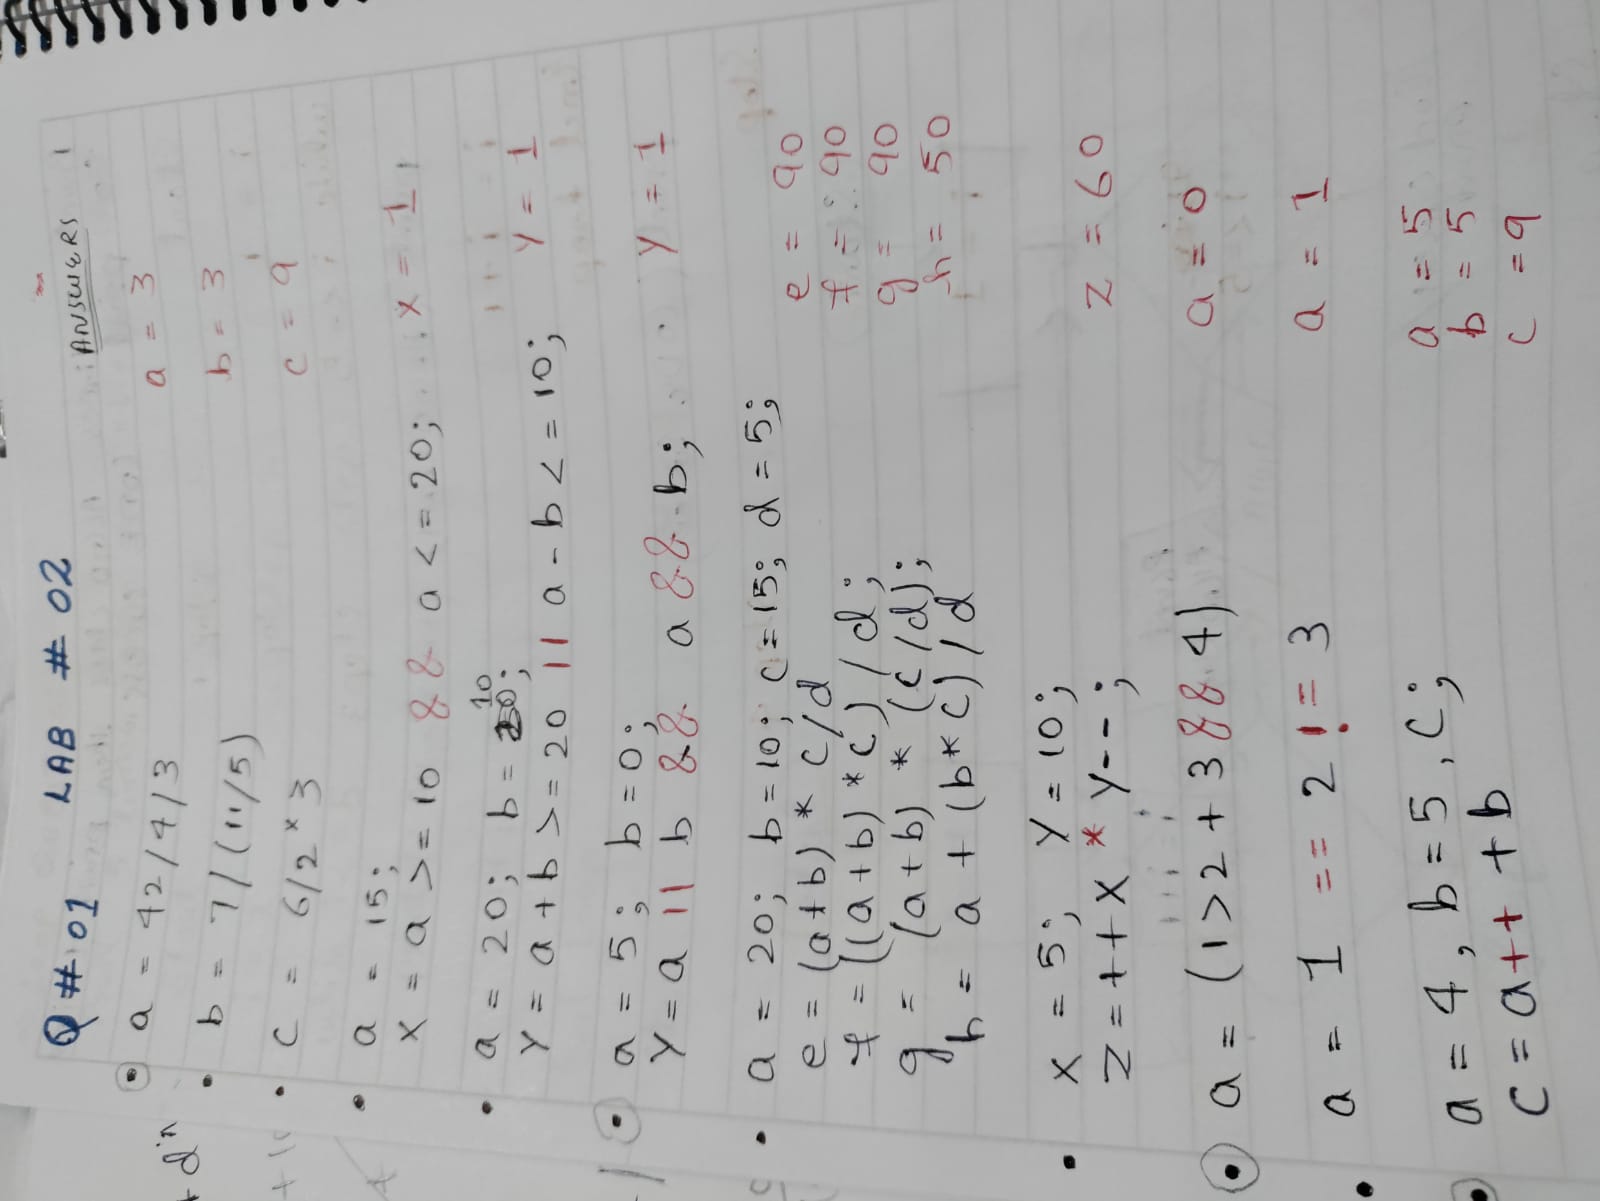 Q # 01 LAB # 02
ANSWERS
a = 42/4/3 a = 3
b = 7/(11/5) b = 3
c = 6/2*3 c = 9
a = 15;
x = a >= 10 && a <= 20; x = 1
a = 20; b = 10;
y = a+b >= 20 || a-b <= 10; y = 1
a = 5; b = 0;
y = a || b && a && b; y = 1
a = 20; b = 10; c = 15; d = 5;
e = (a+b) * c/d e = 90
f = ((a+b)*c)/d; f = 90
g = (a+b) * (c/d); g = 90
h = a + (b*c)/d h = 50
x = 5; y = 10;
z = ++x * y--; z = 60
a = (1>2+3&&4) a = 0
a = 1 == 2 != 3 a = 1
a = 4, b = 5, c; a = 5
c = a++ +b b = 5
c = 9